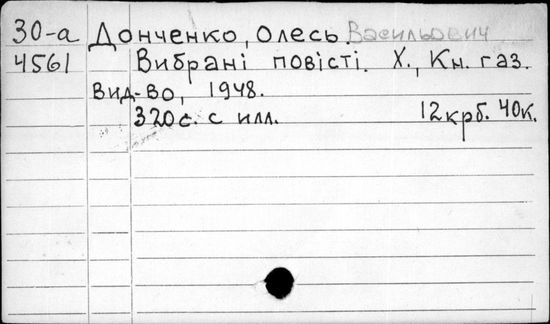 30-а Донченко, Олесь. Васильович
4561 Вибрані повісті. Х., Кн. газ.
вид-во, 1948.
320 с. с илл. 12 крб. 40 к.